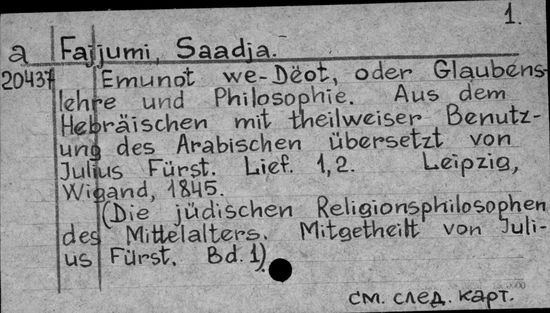 1.
a Fajjumi, Saadja.
20437 Emunot we-Dëot, oder Glaubens-
lehre und Philosophie. Aus dem
Hebräischen mit theilweiser Benutz-
ung des Arabischen übersetzt von
Julius Fürst. Lief. 1,2. Leipzig,
Wigand, 1845.
(Die jüdischen Religionsphilosophen
des Mittelalters. Mitgetheilt von Juli-
us Fürst. Bd. 1).
см. след. карт.